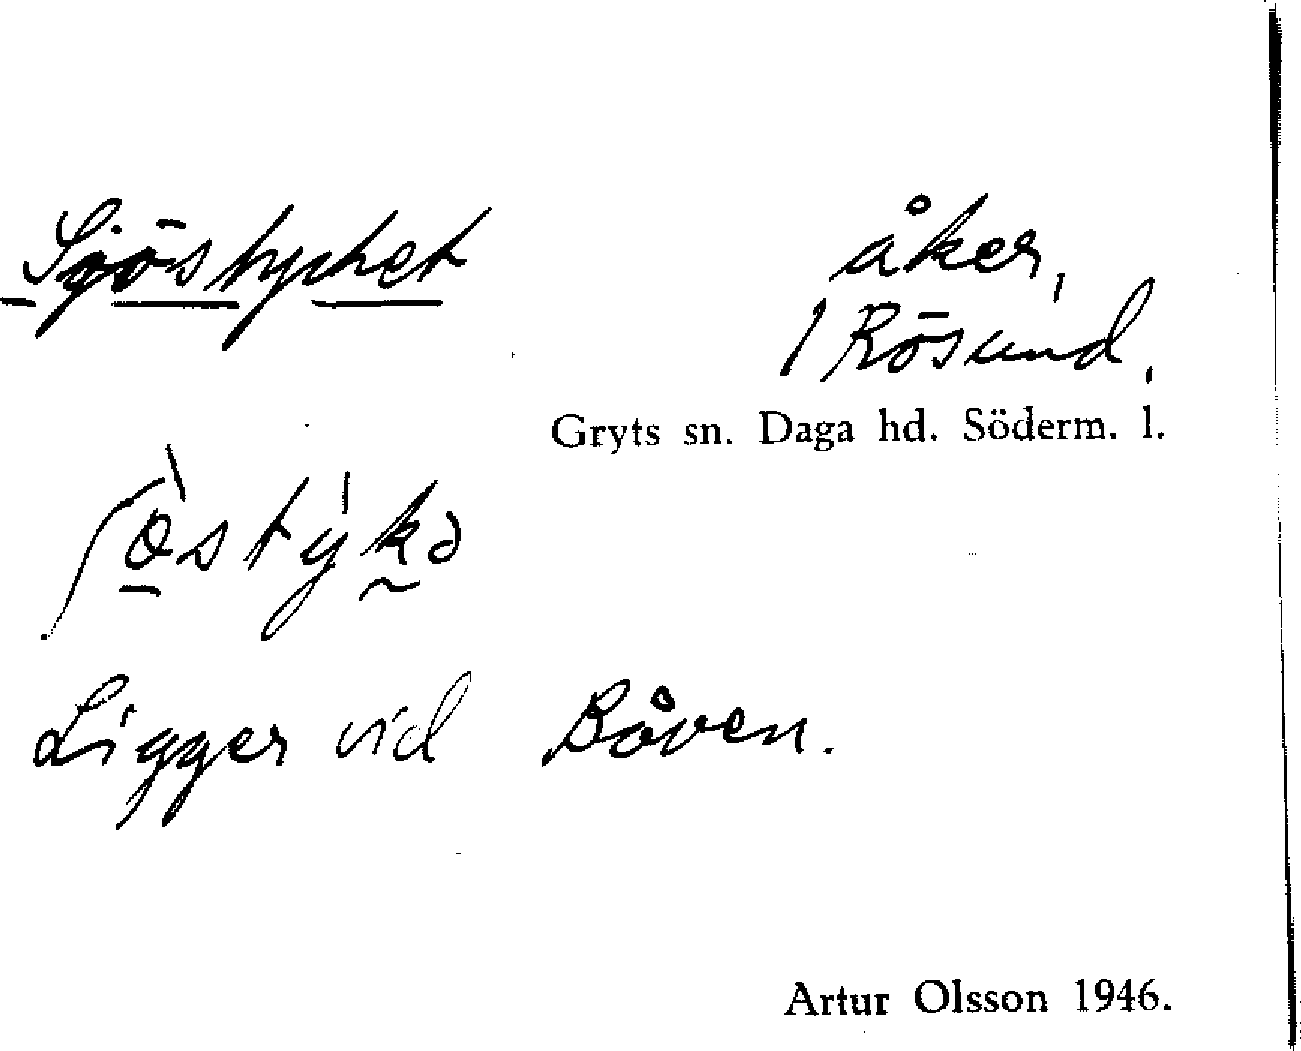 Sjöstycket
åker,
1 Rösund,
Gryts sn. Daga hd. Söderm. l.
Ligger vid Båven.
Artur Olsson 1946.